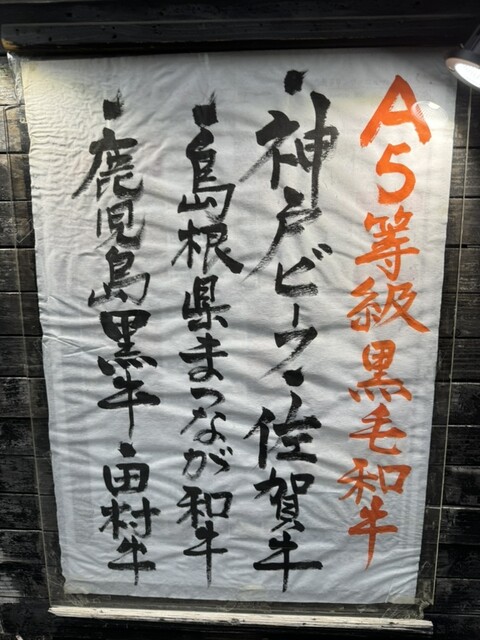 A5等級黒毛和牛
・神戸ビーフ・佐賀牛
・島根県まつなが和牛
・鹿児島黒牛・田村牛